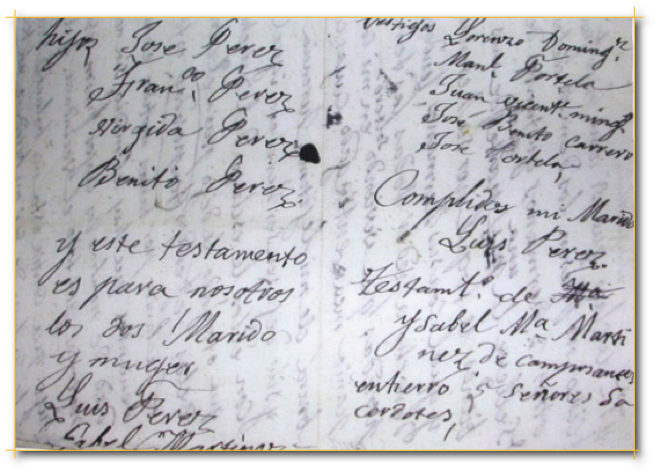 hijos Jose Perez
Fran.co Perez
Birgida Perez
Benito Perez
y este testamento
es para nosotros
los dos Marido
y muger
Luis Perez
Isabel Martinez
testigos Lorenzo Doming.z
Man.l Portela
Juan Vicente
Jose Benito Carrero
Jose Portela
Complidor mi Marido
Luis Perez
Testamt.o de
Ysabel Ma Marti
nez de
entierro 5 señores Sa
cerdotes